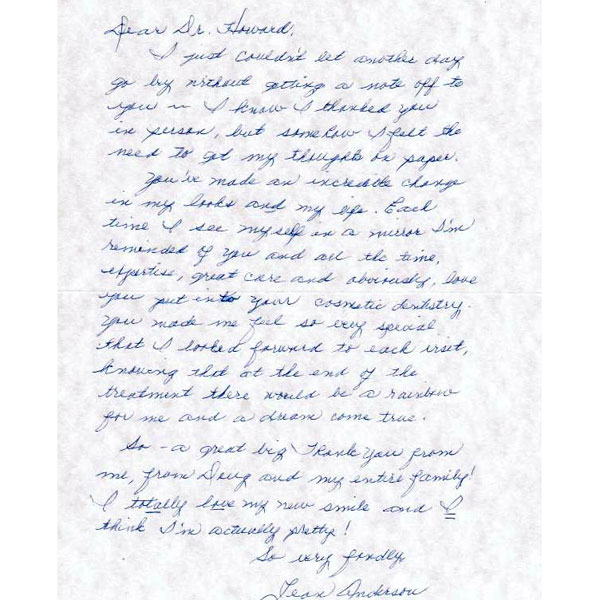 Dear Dr. Howard,
I just couldn't let another day
go by without getting a note off to
you ~ I know I thanked you
in person, but somehow I felt the
need to get my thoughts on paper.
You've made an incredible change
in my looks and my life. Each
time I see myself in a mirror I'm
reminded of you and all the time,
expertise, great care and obviously, love
you put into your cosmetic dentistry.
You made me feel so very special
that I looked forward to each visit,
knowing that at the end of the
treatment there would be a rainbow
for me and a dream come true.
So - a great big Thank You from
me, from Doug and my entire family!
I totally love my new smile and I
think I'm actually pretty!
So very fondly,
Jean Anderson